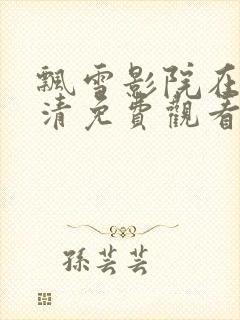 飄雪影院在
清免費觀看
孫芸芸